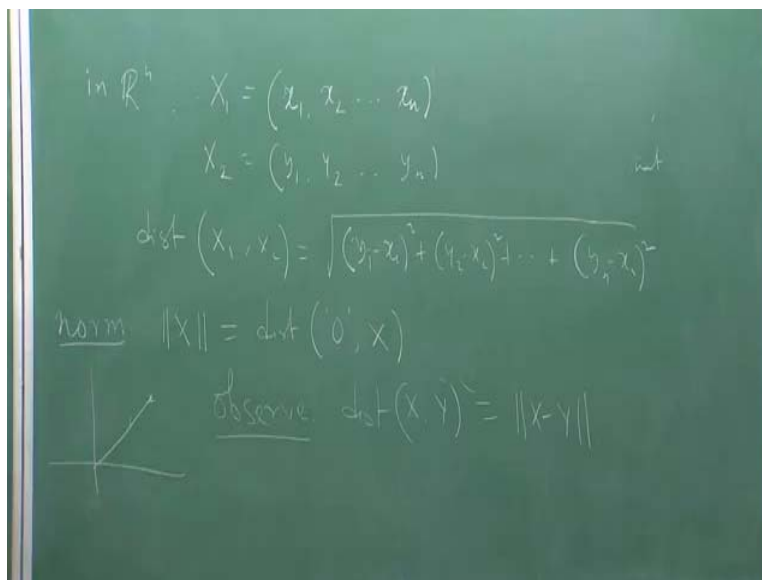 in ℝⁿ .. X₁ = (x₁, x₂ ... xₙ)
X₂ = (y₁, y₂ ... yₙ)
dist (X₁, X₂) = √((y₁-x₁)² + (y₂-x₂)² + ... + (yₙ-xₙ)²)
norm ||X|| = dist ('0', X)
Observe dist (X, Y) = ||X-Y||